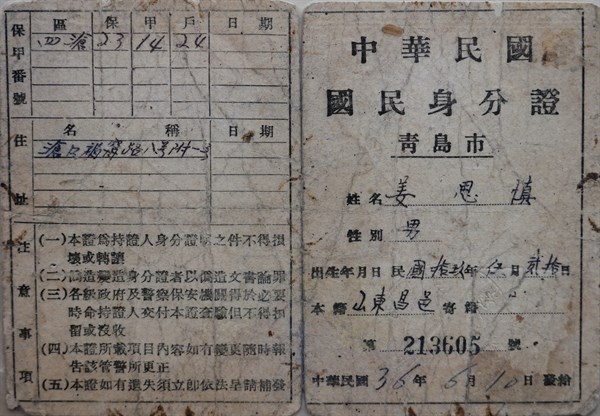 中華民國
國民身分證
青島市
姓名 姜思慎
性別 男
出生年月日 民國拾玖年伍月貳拾日
本籍 山東昌邑 寄籍
第 213605 號
中華民國 36 年 6 月 10 日發給
保甲番號
區 保 甲 戶 日期
四滄 23 14 24
住址
名稱 日期
滄口 路八号附一号
注意事項
(一)本證為持證人身分證明之件不得損
壞或轉讓
(二)偽造變造身分證者以偽造文書論罪
(三)各級政府及警察保安機關得於必要
時命持證人交付本證查驗但不得扣
留或沒收
(四)本證所載項目內容如有變更隨時報
告該管警所更正
(五)本證如有遺失須立即依法呈請補發